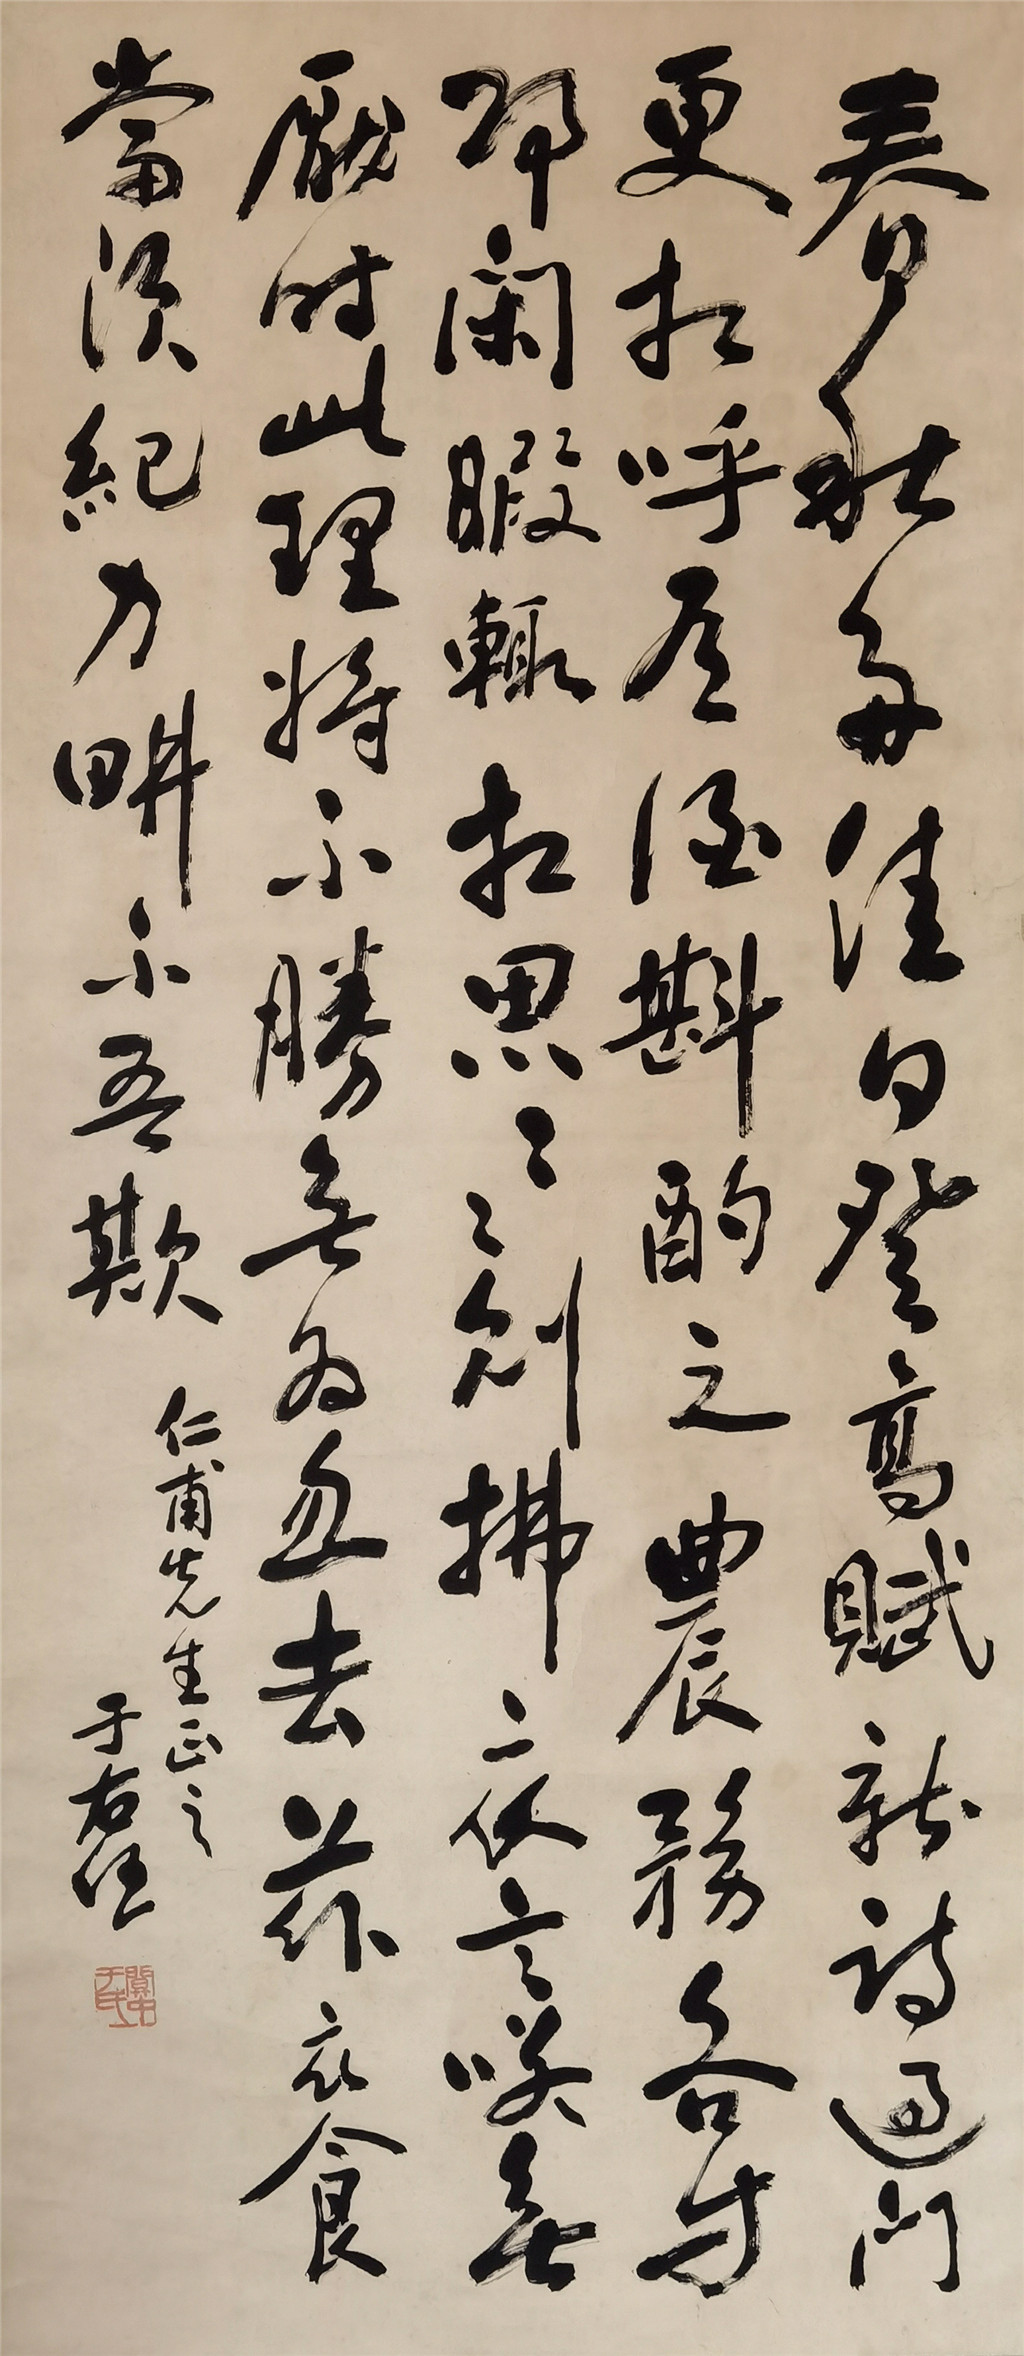 春秋多佳日登高賦新詩過門
更相呼有酒斟酌之農務各自
歸閑暇輒相思〻〻則拂衣言咲無
厭时此理將不勝無為忽去茲衣食
當湏紀力畊不吾欺
仁甫先生正之
于右任
關中于氏